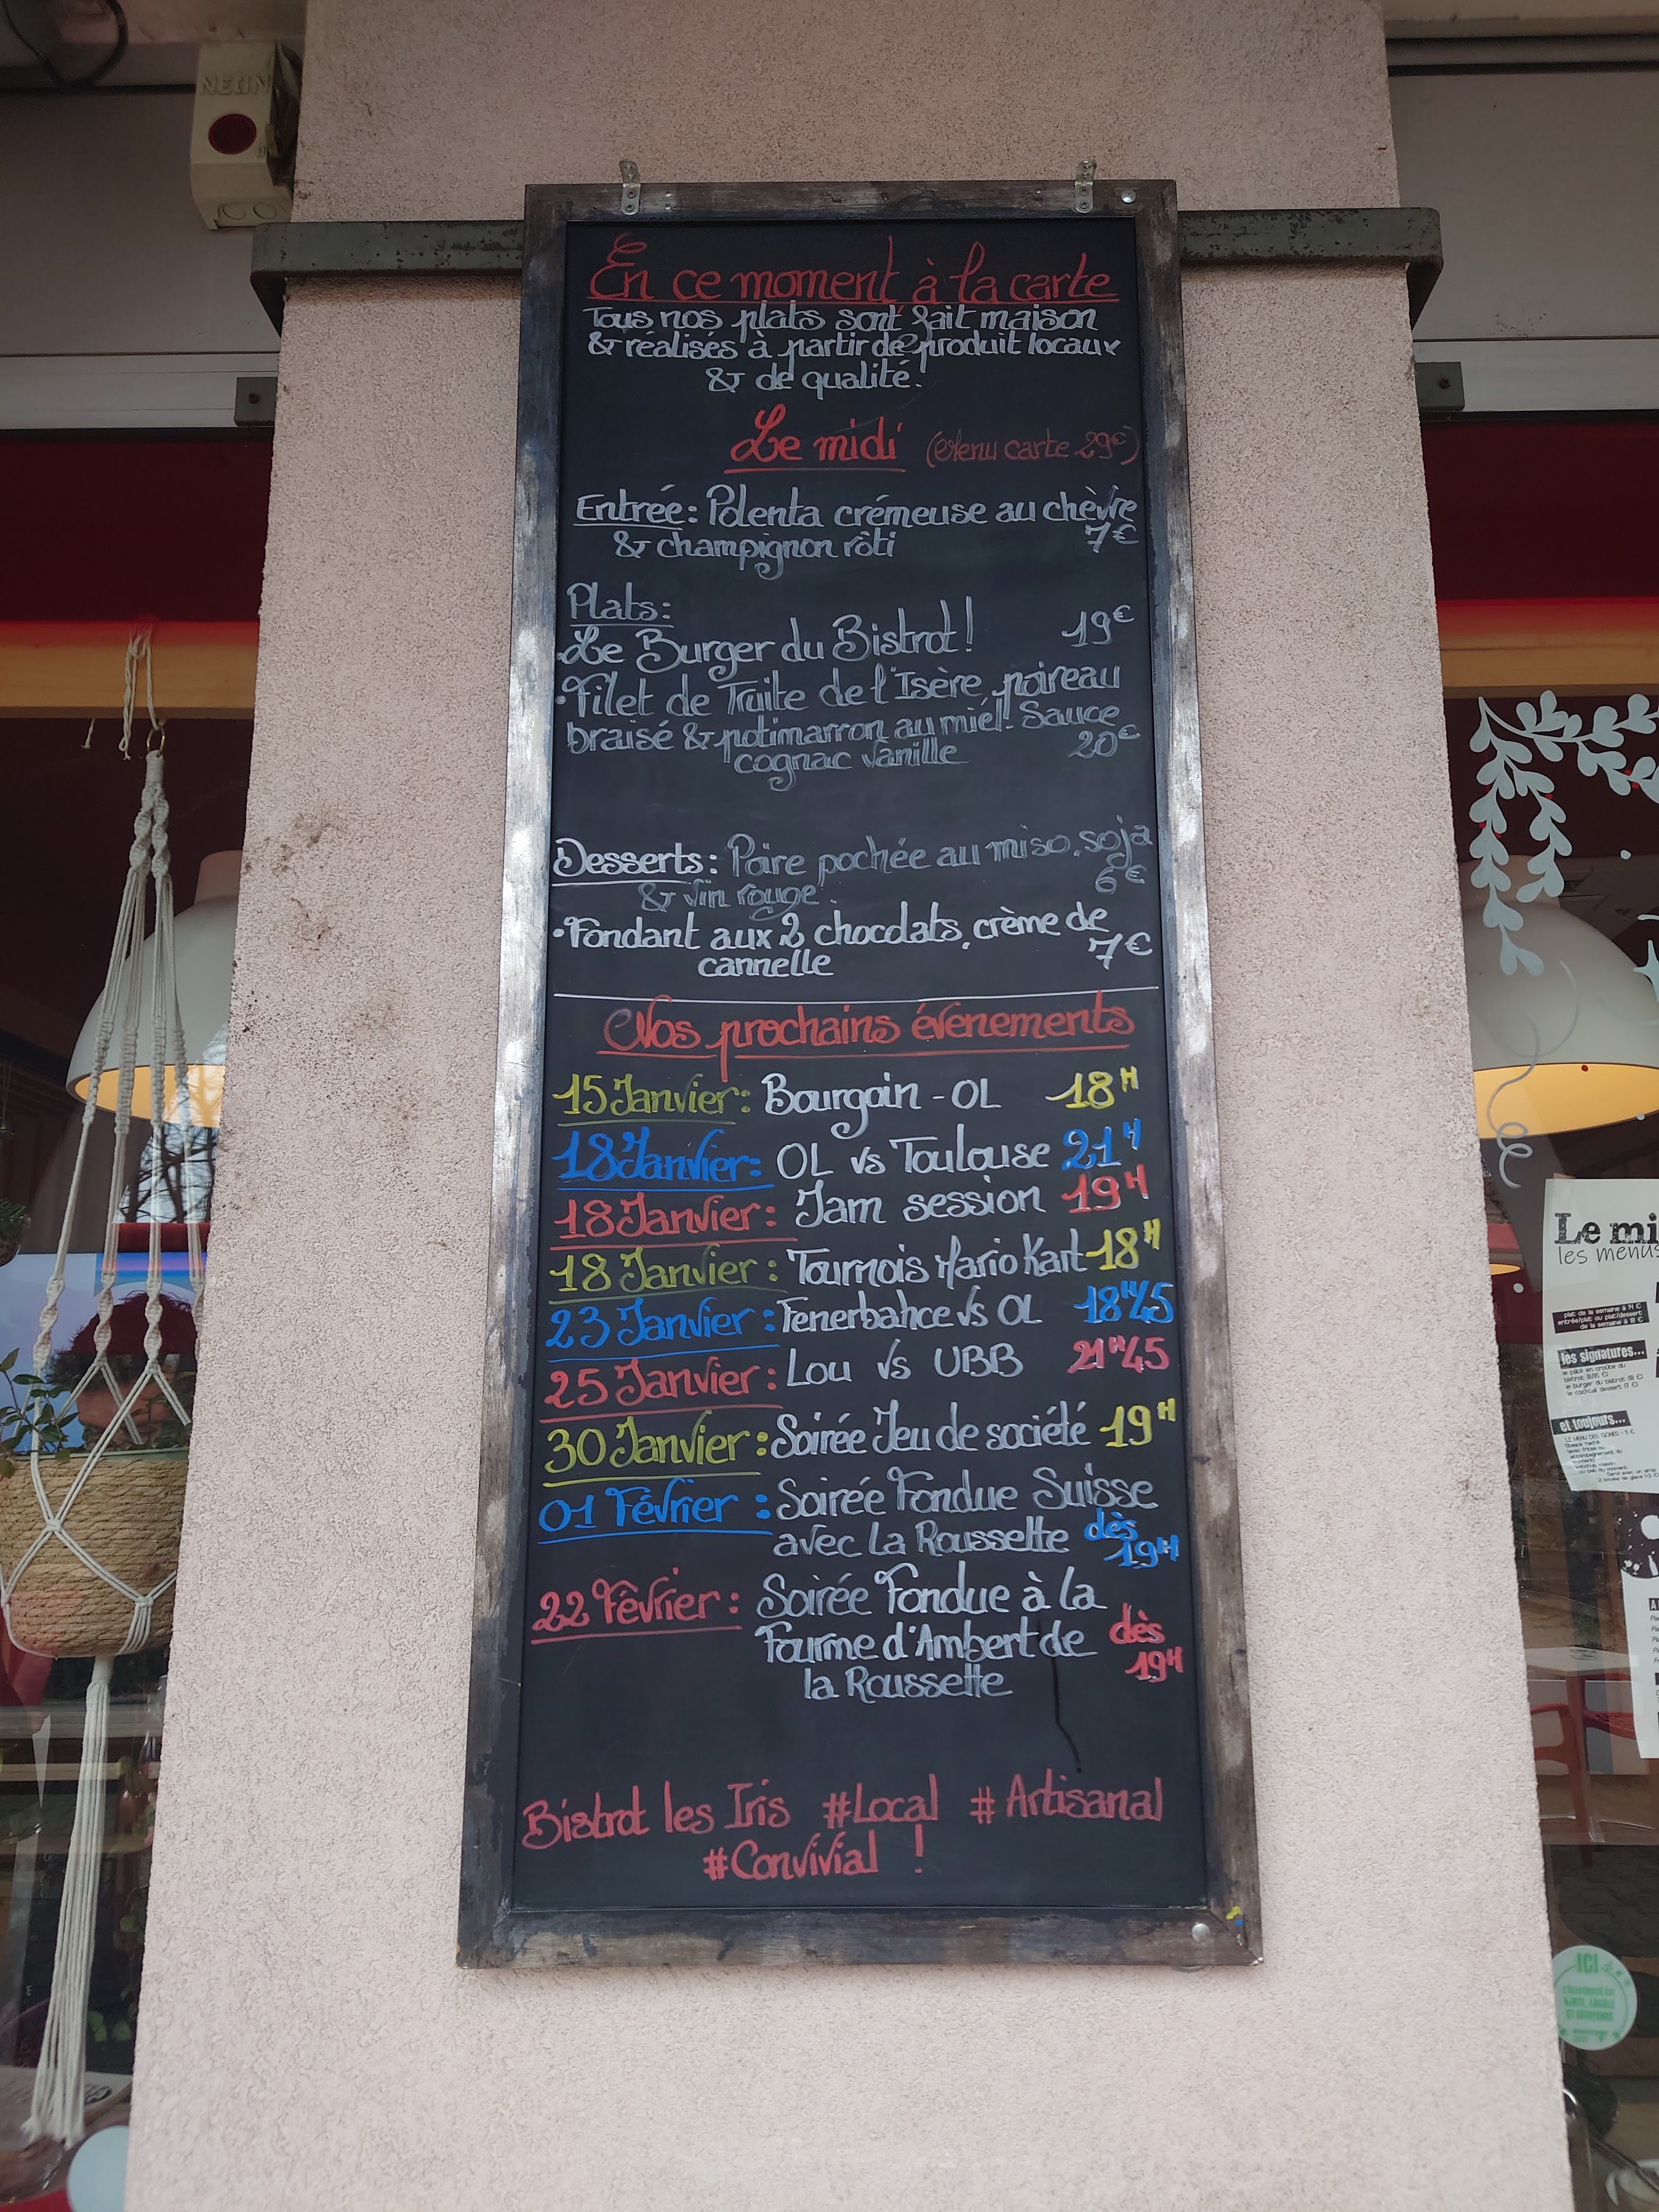 En ce moment à la carte
Tous nos plats sont fait maison
& réalisés à partir de produit locaux
& de qualité!
Le midi (Menu carte 29€)
Entrée: Polenta crémeuse au chèvre
& champignon rôti 7€
Plats:
•Le Burger du Bistrot! 19€
•Filet de Truite de l'Isère, poireau
braisé & potimarron au miel. Sauce
cognac vanille 20€
Desserts: Poire pochée au miso, soja
& vin rouge. 6€
•Fondant aux 2 chocolats, crème de
cannelle 7€
Nos prochains évenements
15 Janvier: Bourgoin - OL 18H
18 Janvier: OL vs Toulouse 21H
18 Janvier: Jam session 19H
18 Janvier: Tournois Mario Kart 18H
23 Janvier: Fenerbahce vs OL 18H45
25 Janvier: Lou vs UBB 21H45
30 Janvier: Soirée Jeu de société 19H
01 Février: Soirée Fondue Suisse
avec La Roussette dès
19H
22 Février: Soirée Fondue à la
Fourme d'Ambert de dès
la Roussette 19H
Bistrot les Iris #Local #Artisanal
#Convivial !
Le mi
les menus
plat de la semaine à 14 €
entrée/plat ou plat/dessert
de la semaine à 18 €
les signatures...
le pâté en croûte du
le burger du bistrot
et toujours...
ICI